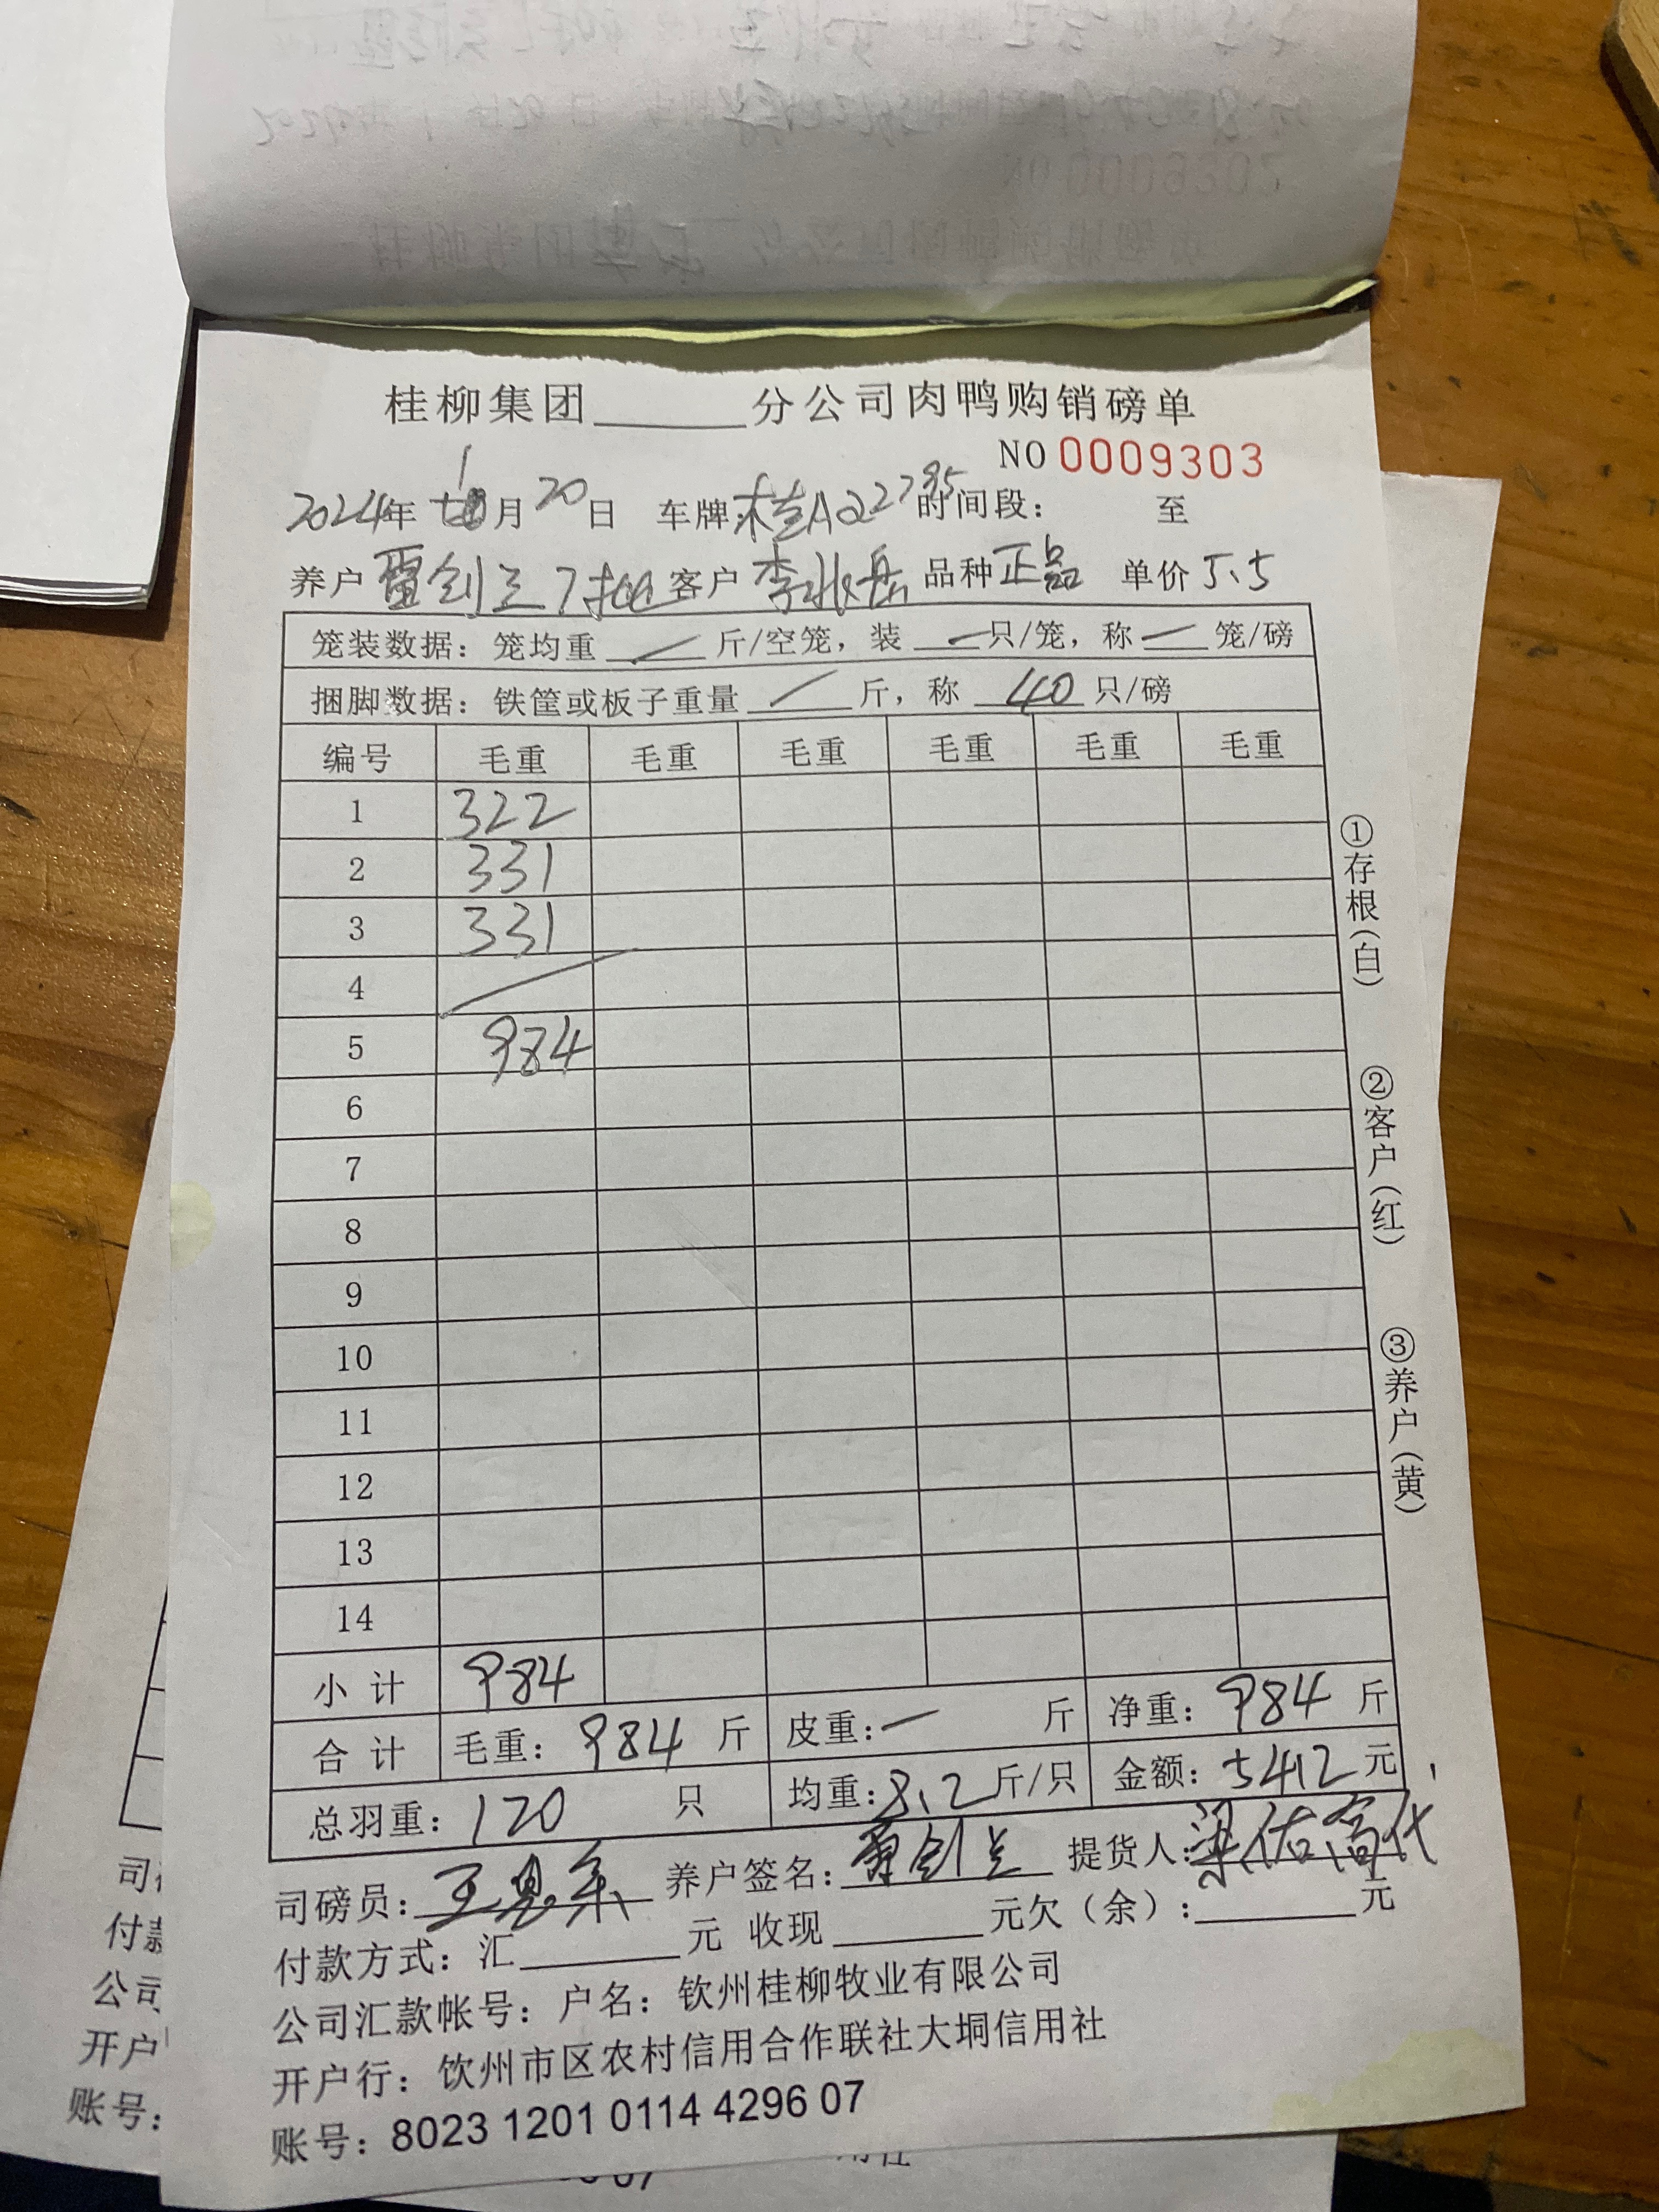 桂柳集团______分公司肉鸭购销磅单
NO 0009303
2024年 1月20日 车牌:桂A Q2795 时间段: 至
养户 雷剑兰7批 客户 李兆岳 品种 正品 单价 5.5
笼装数据: 笼均重 — 斤/空笼, 装 — 只/笼, 称 — 笼/磅
捆脚数据: 铁筐或板子重量 — 斤, 称 40 只/磅
编号 毛重 毛重 毛重 毛重 毛重 毛重
1 322
2 331
3 331
4
5 984
6
7
8
9
10
11
12
13
14
小计 984
合计 毛重: 984 斤 皮重: — 斤 净重: 984 斤
总羽重: 120 只 均重: 8.2 斤/只 金额: 5412 元
司磅员: 王 养户签名: 雷剑兰 提货人: 梁佑富代
付款方式: 汇______元 收现______元欠(余):______元
公司汇款帐号: 户名: 钦州桂柳牧业有限公司
开户行: 钦州市区农村信用合作联社大垌信用社
账号: 8023 1201 0114 4296 07
①存根(白)
②客户(红)
③养户(黄)
司
付款
公司
开户
账号: